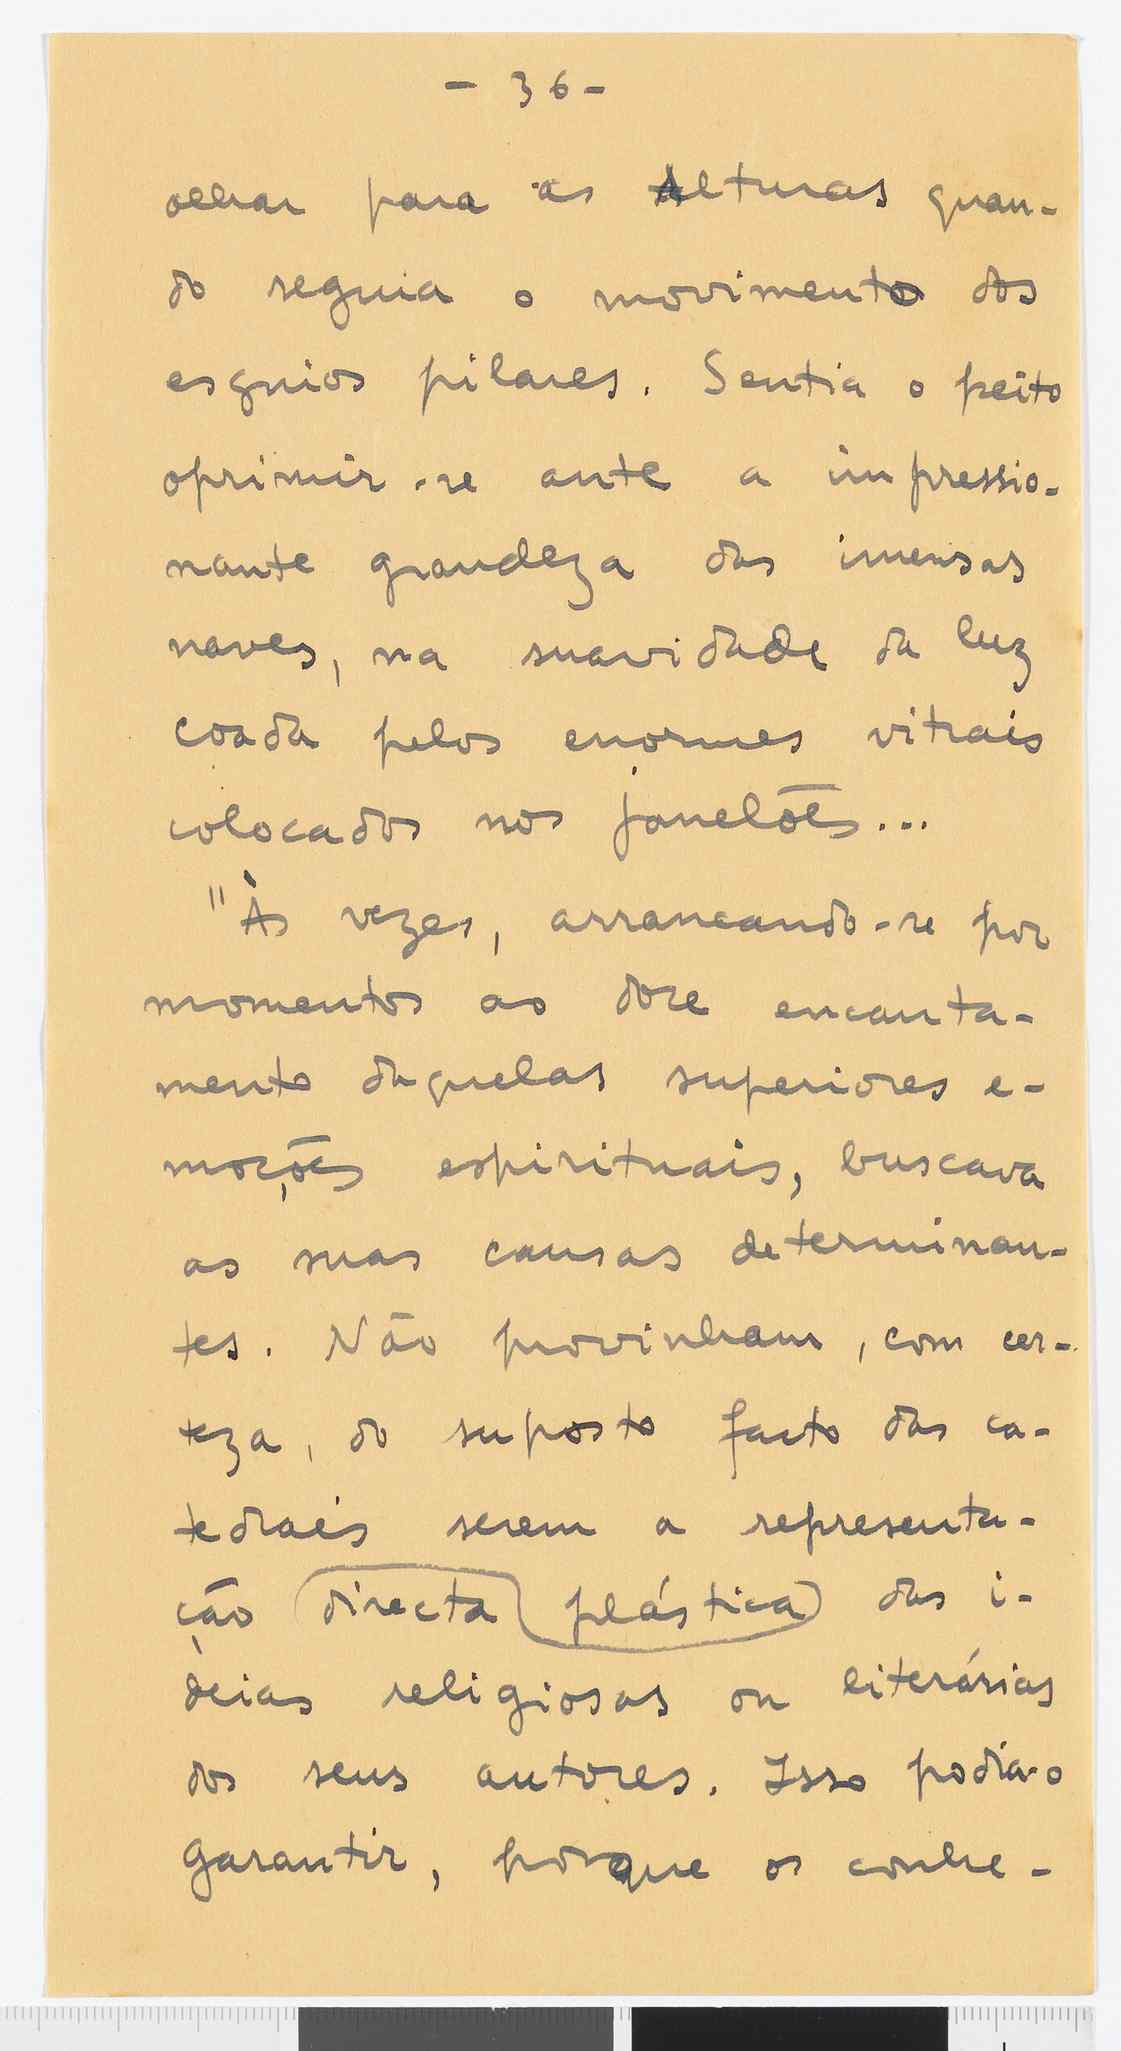 - 36 -
olhar para as Alturas quan-
do seguia o movimento dos
esguios pilares. Sentia o peito
oprimir-se ante a impressio-
nante grandeza das imensas
naves, na suavidade da luz
coada pelos enormes vitrais
colocados nos janelões...
"Às vezes, arrancando-se por
momentos ao doce encanta-
mento daquelas superiores e-
moções espirituais, buscava
as suas causas determinan-
tes. Não provinham, com cer-
teza, do suposto facto das ca-
tedrais serem a representa-
ção directa plástica das i-
deias religiosas ou literárias
dos seus autores. Isso podia-o
garantir, porque os conhe-